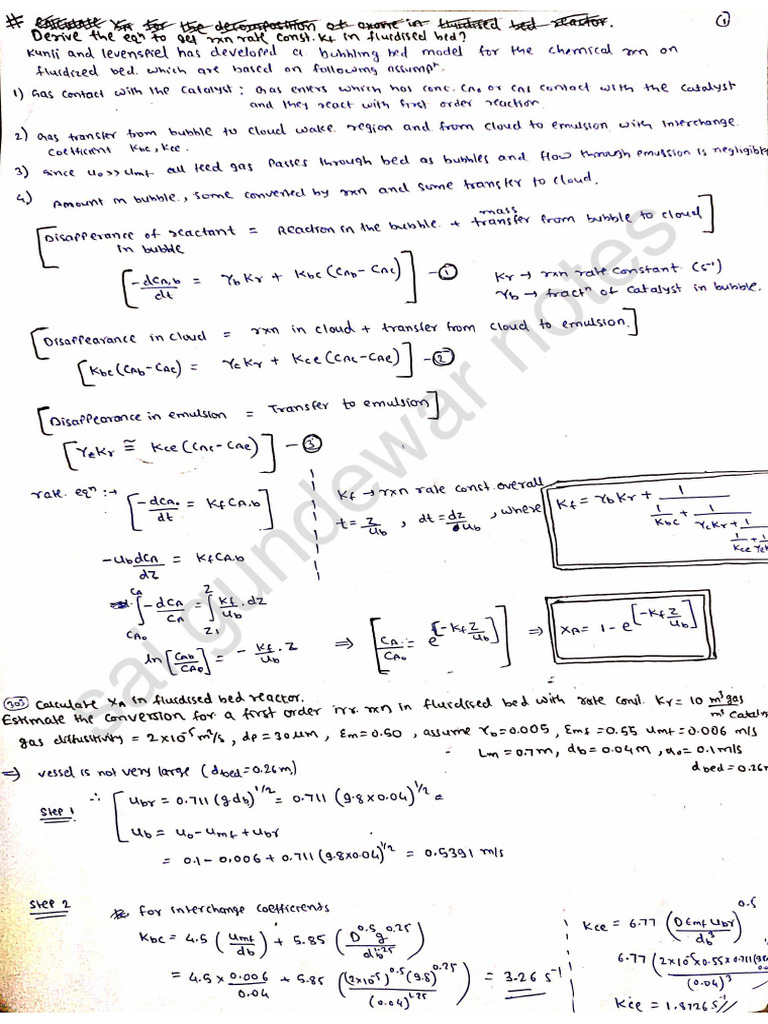 ①
# Calculate XA for the decomposition of ozone in fluidised bed reactor.
Derive the eqⁿ to get rxn rate const. Kf in fluidised bed?
Kunii and levenspiel has developed a bubbling bed model for the chemical rxn on
fluidized bed. which are based on following assumpⁿ.
1) Gas contact with the catalyst : Gas enters which has conc. CA0 or CAi contact with the catalyst
and they react with first order reaction.
2) Gas transfer from bubble to cloud wake region and from cloud to emulsion with interchange
coefficient Kbc, Kce.
3) since u0 >> umf all feed gas passes through bed as bubbles and flow through emulsion is negligible
4) Amount in bubble, some converted by rxn and some transfer to cloud.
[Disapperance of reactant in bubble = Reaction in the bubble + mass transfer from bubble to cloud]
[-dCA,b/dt = γb Kr + Kbc (CAb - CAc)] — ①
Kr → rxn rate constant (s⁻¹)
γb → fractⁿ of catalyst in bubble.
[Disappearance in cloud = rxn in cloud + transfer from cloud to emulsion.]
[Kbc (CAb - CAc) = γc Kr + Kce (CAc - CAe)] — ②
[Disappearance in emulsion = Transfer to emulsion]
[γe Kr ≅ Kce (CAc - CAe)] — ③
rate. eqⁿ :→ [-dCA/dt = Kf CA,b]
Kf → rxn rate const. overall
t = Z/ub , dt = dz/ub , where
Kf = γb Kr + 1/(1/Kbc + 1/(γc Kr + 1/(1/Kce + 1/γe
-ub dCA/dZ = Kf CA,b
∫ CA0 CA -dCA/CA = ∫ Z1 Z Kf/ub . dz
ln [CAb/CA0] = - Kf/ub . Z ⇒ [CA/CA0 = e^[-Kf Z/ub]] ⇒ XA = 1 - e^[-Kf Z/ub]
303 Calculate XA in fluidised bed reactor.
Estimate the conversion for a first order irr. rxn in fluidised bed with rate const. Kr = 10 m³ gas/m³
gas diffustivity = 2×10⁻⁵ m²/s, dp = 30 μm, Em = 0.50, assume γb = 0.005, Emf = 0.55 umf = 0.006 m/s
Lm = 0.7 m, db = 0.04 m, u0 = 0.1 m/s
⇒ vessel is not very large (dbed = 0.26 m)
Step 1 ∴ [ubr = 0.711 (g db)^1/2 = 0.711 (9.8 × 0.04)^1/2 =
ub = u0 - umf + ubr
= 0.1 - 0.006 + 0.711 (9.8×0.04)^1/2 = 0.5391 m/s
Step 2 for interchange coefficients
Kbc = 4.5 (umf/db) + 5.85 (D^0.5 g^0.25/db^1.25)
= 4.5 × 0.006/0.04 + 5.85 ((2×10⁻⁵)^0.5 (9.8)^0.25/(0.04)^1.25) = 3.26 s⁻¹
Kce = 6.77 (D Emf ubr/db³)^0.5
Kce = 1.8726 s⁻¹//
sai gundewar notes